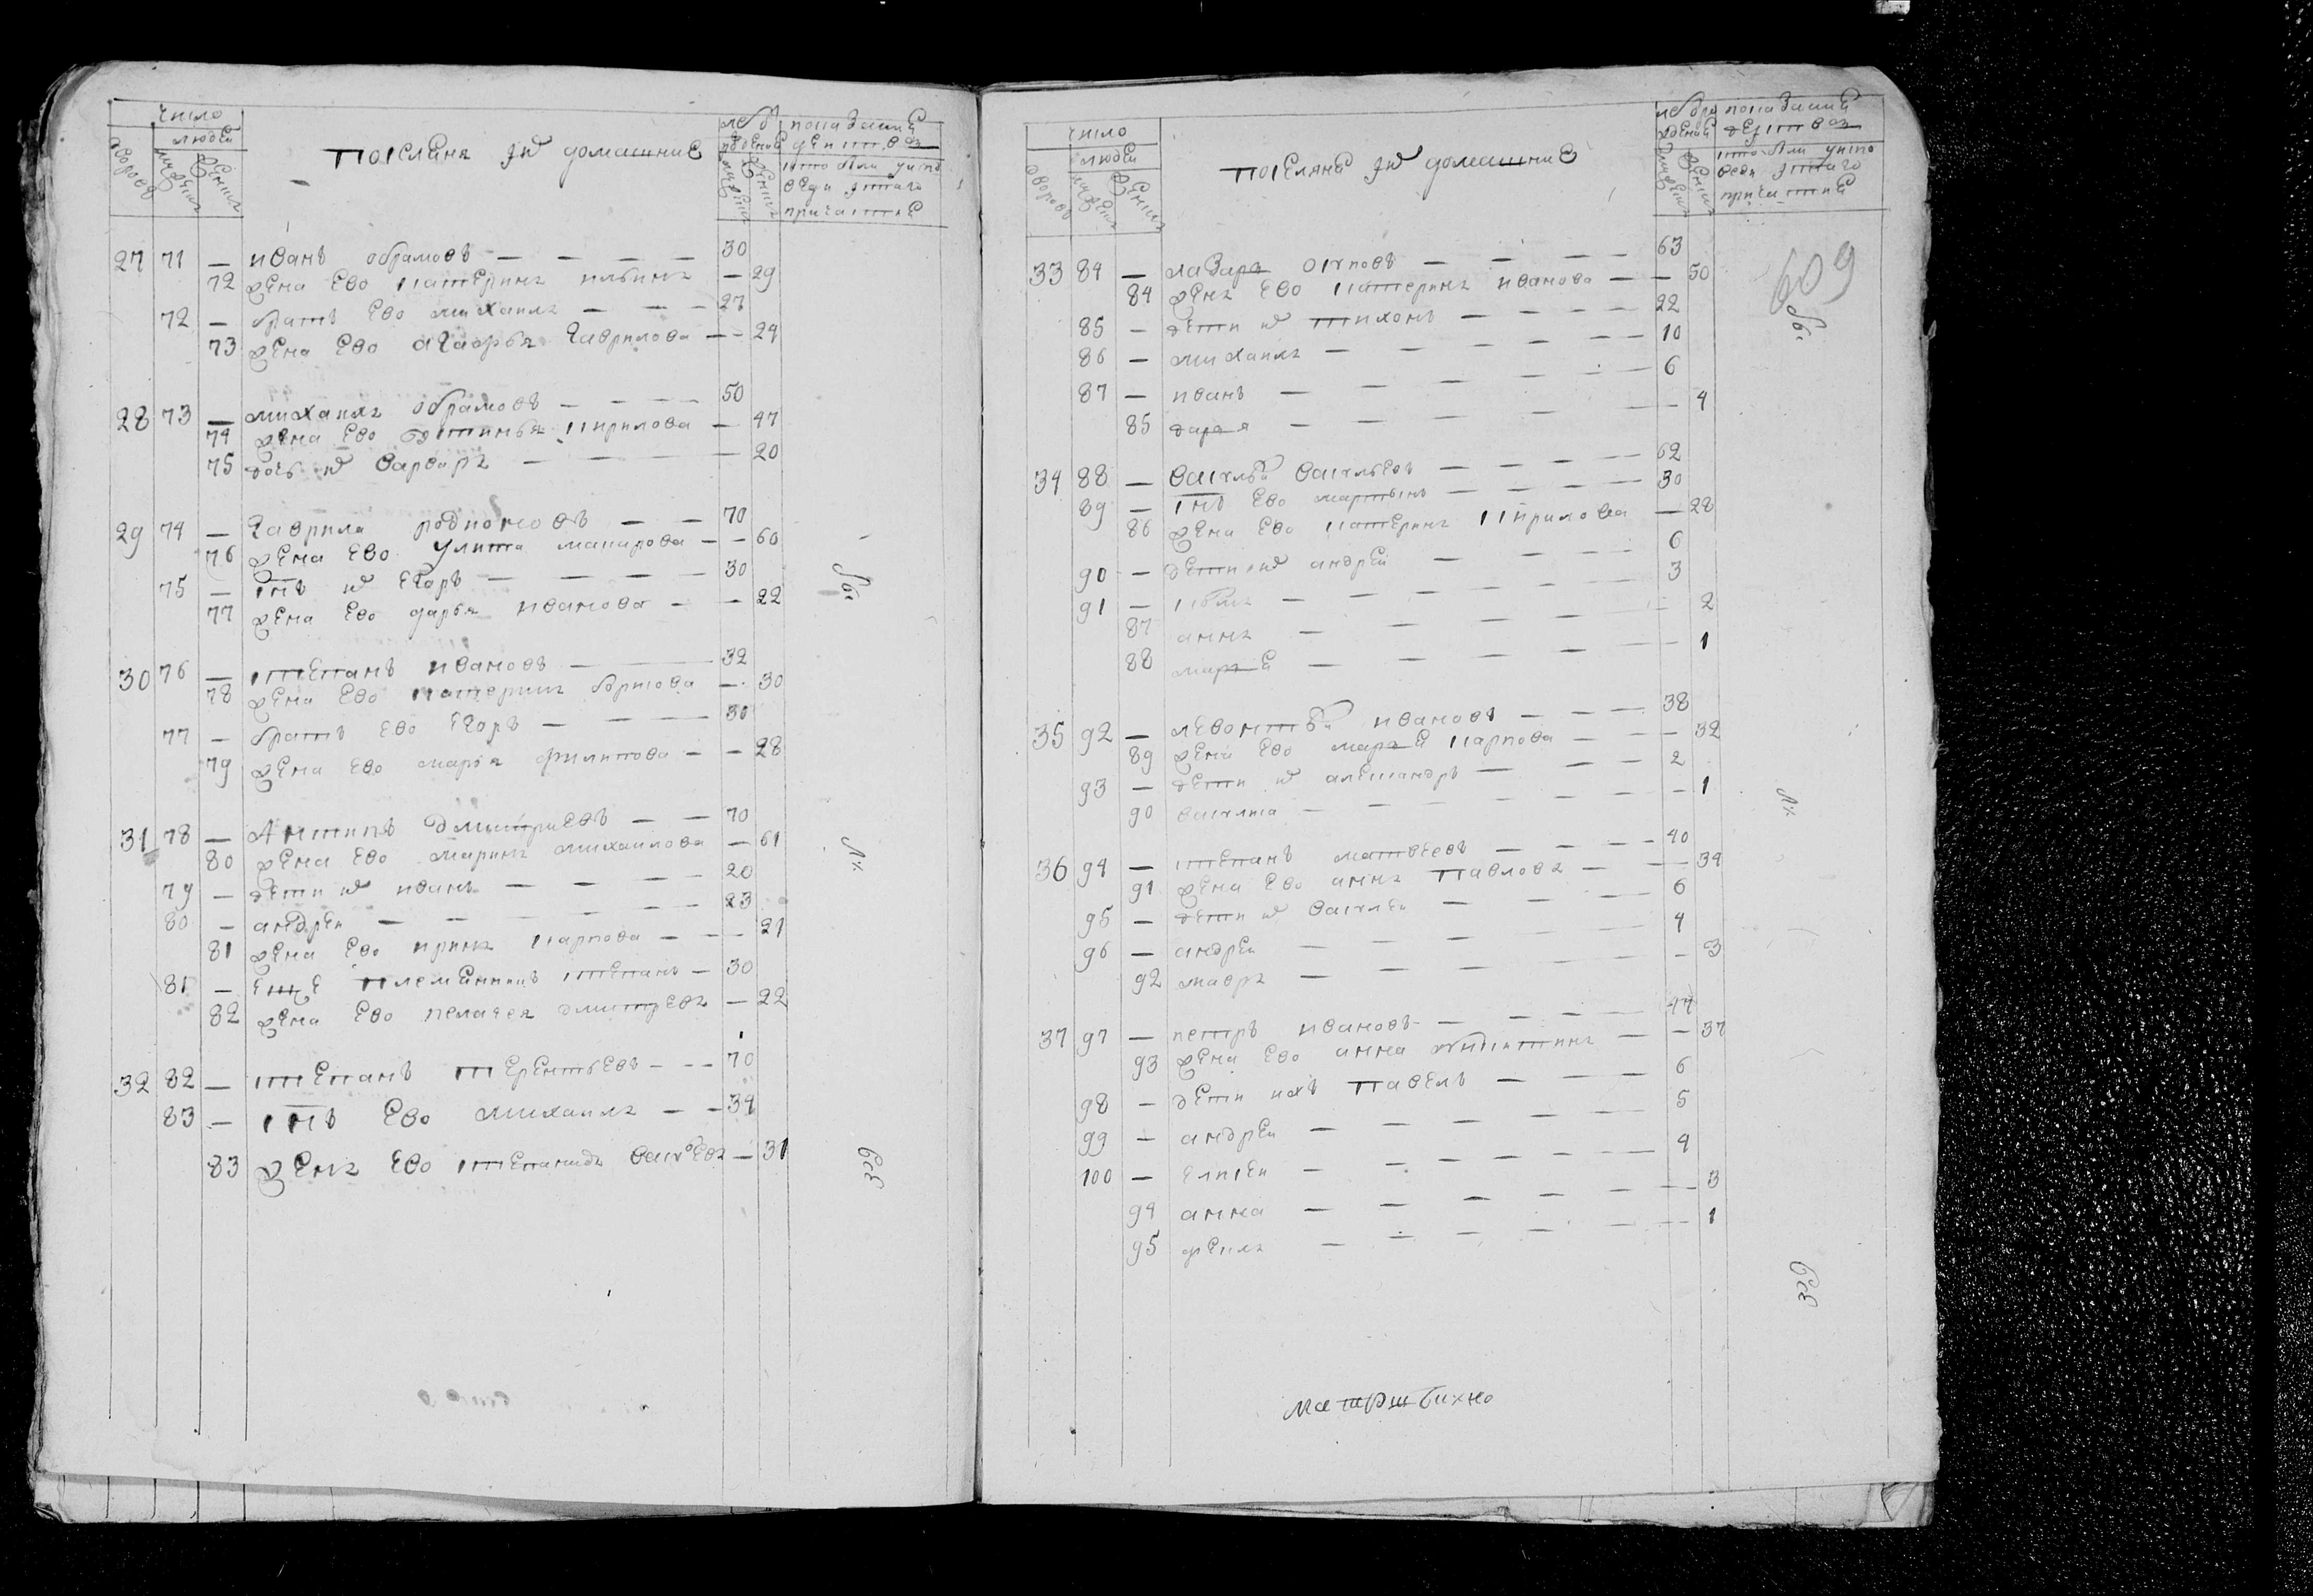 число
людей
дворовъ
мужеск
женска
поселяня их домашние
лет
рождения
мужеск
женска
показание
действа
кто был у испо
веди и святаго
причастия
27 71 — иванъ обрамовъ — — — — 30
72 жена ево катерина ильина — 29
72 — братъ ево михаила — — — 27
73 жена ево агафья гаврилова — — 24
28 73 — михаила обрамовъ — — — — 50
74 жена ево устинья кирилова — 47
75 дочь их варвара — — — — 20
29 74 — гаврила родионовъ — — 70
76 жена ево улита макарова — — 60
75 — снъ их егоръ — — — — 30
77 жена ево дарья иванова — — 22
30 76 — степанъ ивановъ — — 32
78 жена ево катерина борисова — 30
77 — братъ ево егоръ — — — 30
79 жена ево марья филипова — — 28
31 78 — Антипъ дмитриевъ — — 70
80 жена ево марина михаилова — 61
79 — дети их иванъ — — — 20
80 — андреи — — — — — 23
81 жена ево ирина карпова — — — 21
81 — еще племянникъ степанъ — 30
82 жена ево пелагея дмитрева — 22
32 82 — степанъ терентьевъ — — — 70
83 — снъ ево михаила — — 34
83 жена ево степанида — 31
число
людей
дворовъ
мужеск
женска
поселяне их домашние
лет
рождения
мужеск
женска
показание
действа
кто был у испо
веди и святаго
причастия
609
33 84 — лазарь осиповъ — — — — 63
84 жена ево катерина иванова — — 50
85 — дети их тихонъ — — — — 22
86 — михаила — — — — — 10
87 — иванъ — — — — — 6
85 дарья — — — — — 4
34 88 — василей васильевъ — — — — 62
89 — снъ ево мартынъ — — — — 30
86 жена ево катерина кирилова — 28
90 — дети их андрей — — — 6
91 — — — — — 3
87 анна — — — — — 2
88 марье — — — — — 1
35 92 — левонтей ивановъ — — — 38
89 жена ево марье карпова — — — 32
93 — дети их александръ — — — 2
90 василиса — — — — — — 1
36 94 — степанъ матвеевъ — — — — 40
91 жена ево анна павлова — — — 34
95 — дети их василеи — — — 6
96 — андреи — — — — — 4
92 мавра — — — — — 3
37 97 — петръ ивановъ — — — — 44
93 жена ево анна — — 37
98 — дети ихъ павелъ — — — 6
99 — андреи — — — — — 5
100 — елисеи — — — — — 4
94 анна — — — — — — 3
95 фекла — — — — — 1